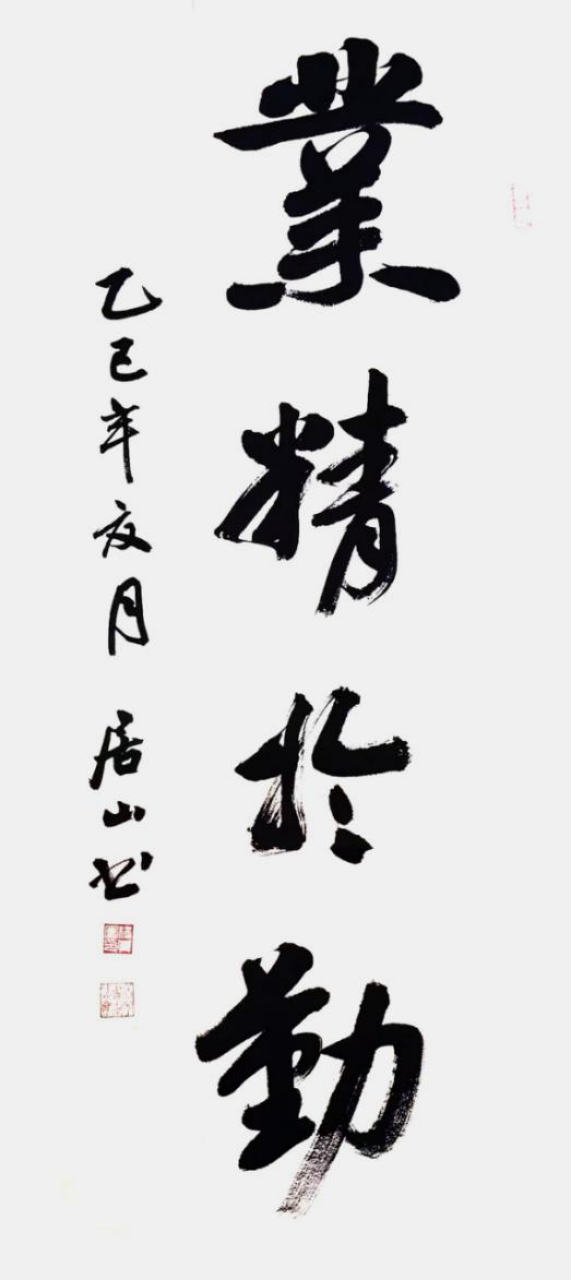 業精於勤
乙巳年亥月 居山书